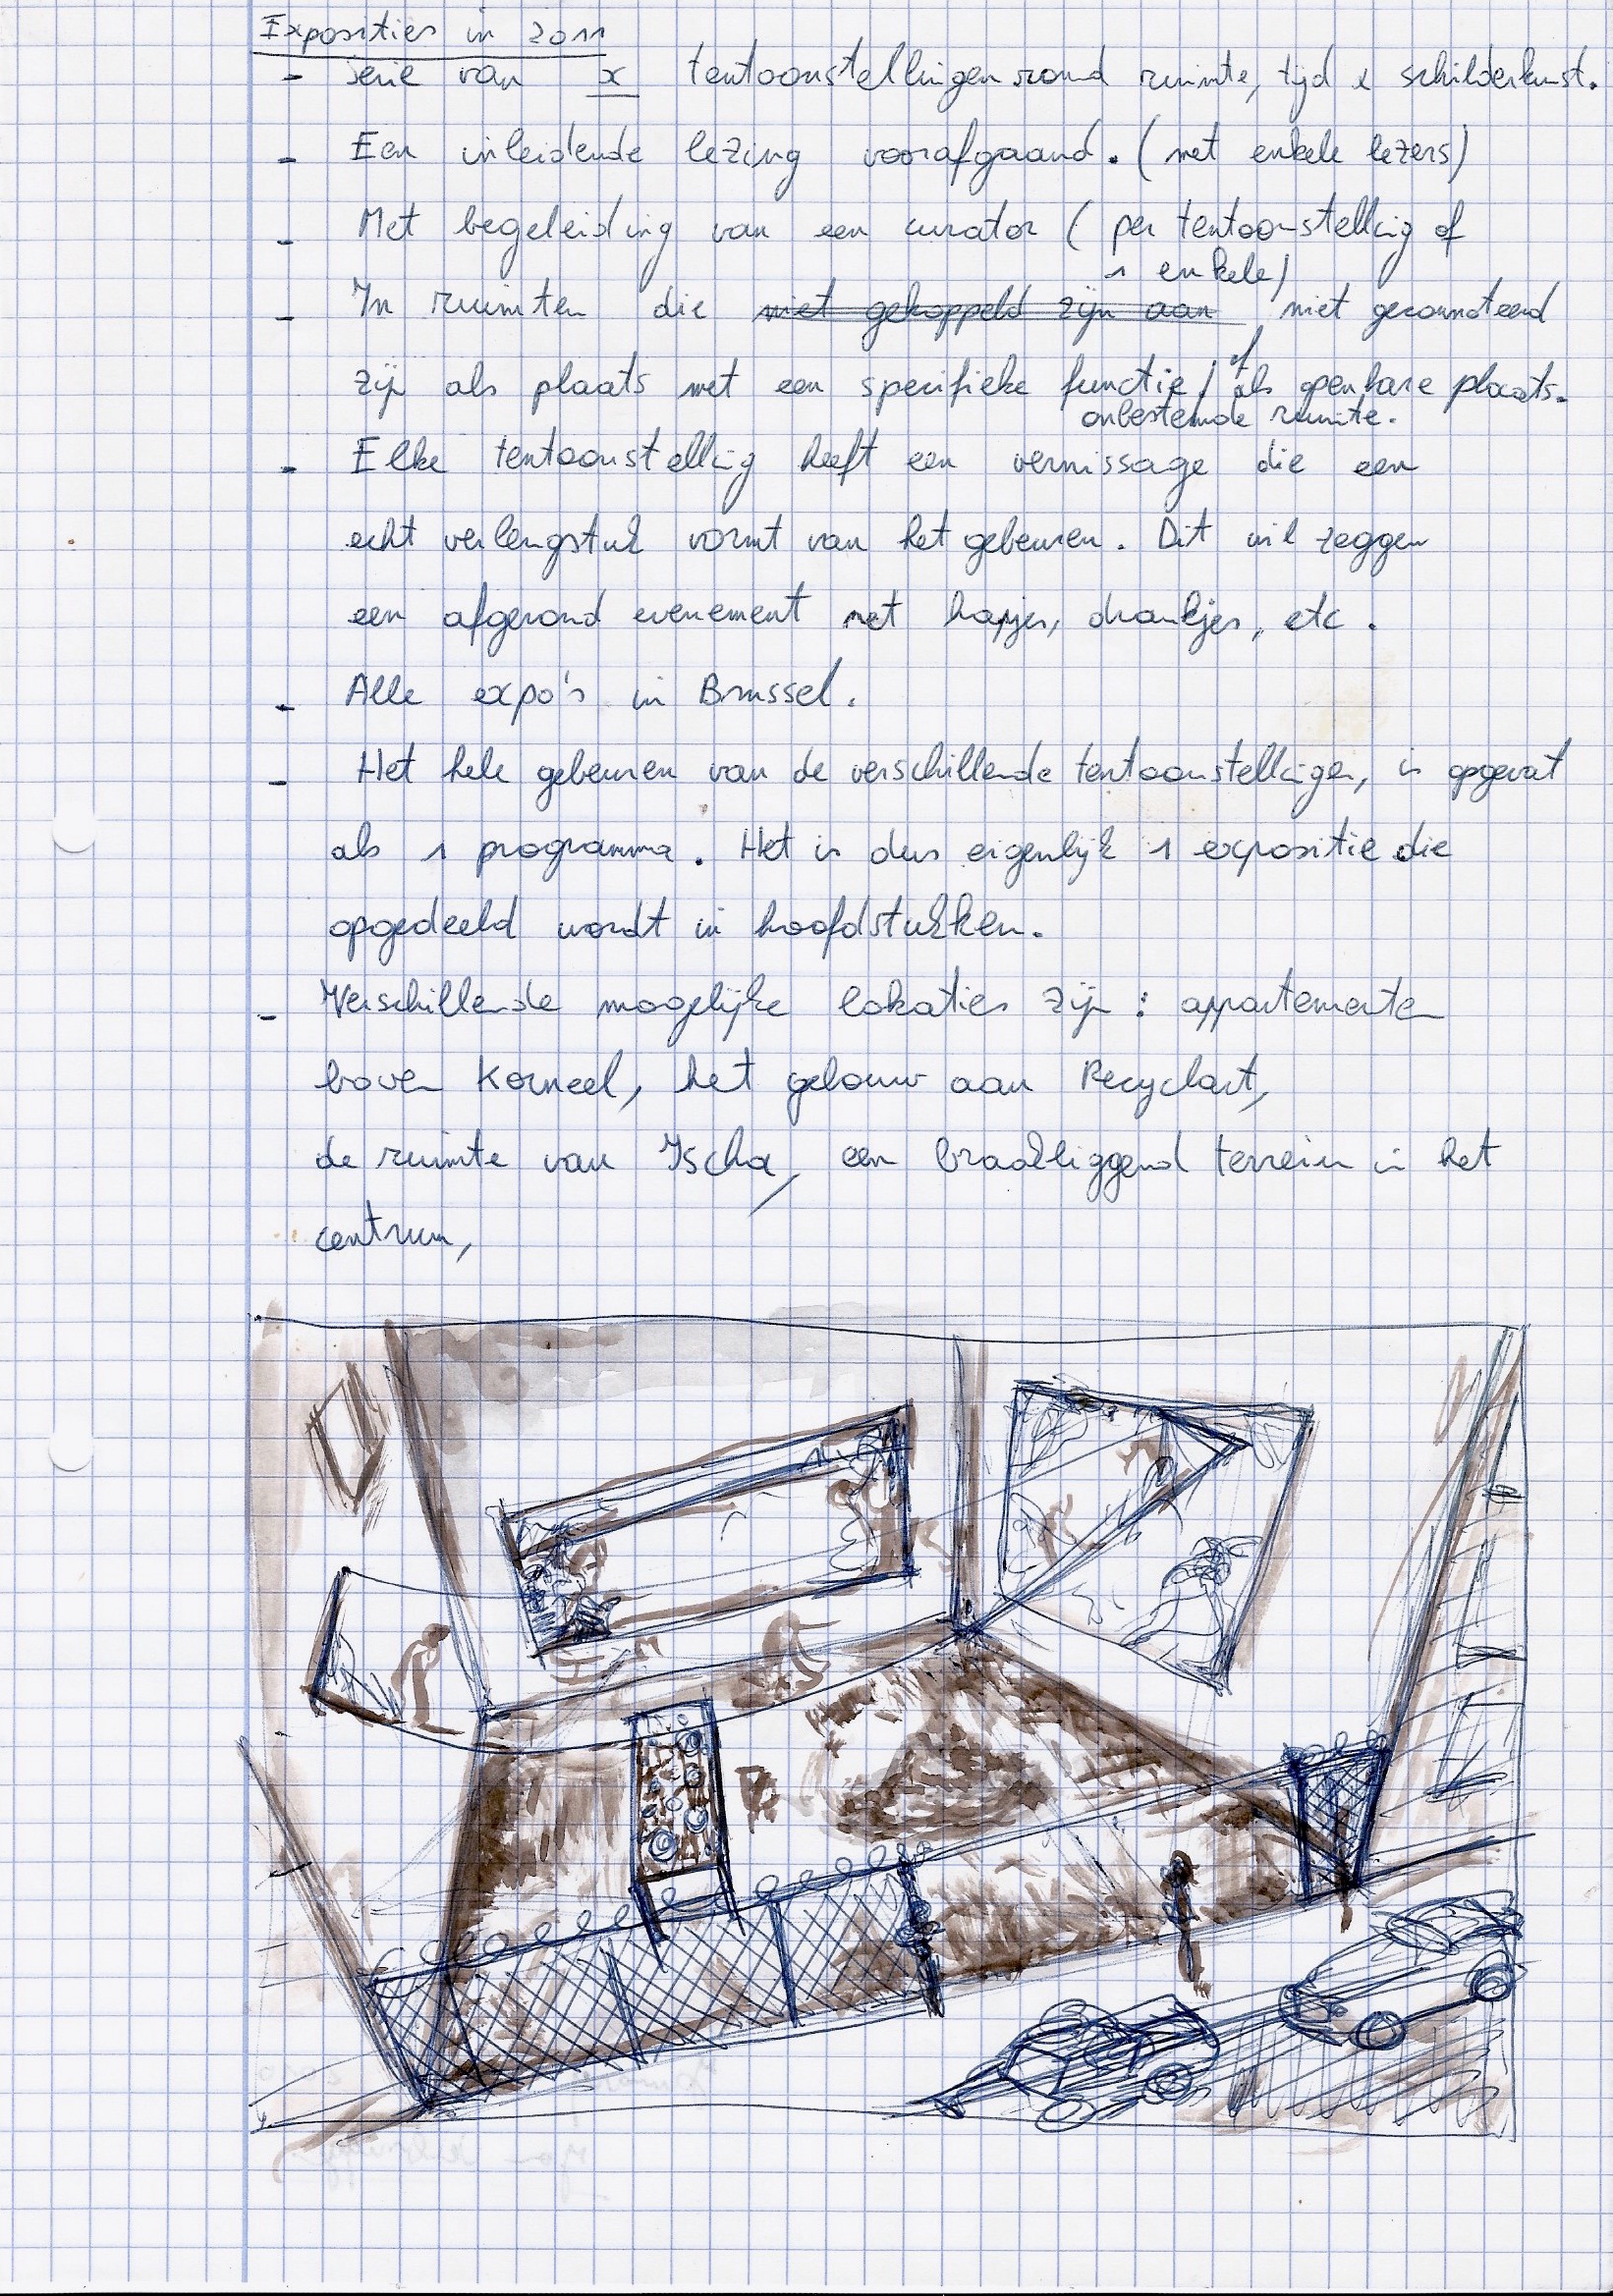 Exposities in 2011
- serie van x tentoonstellingen rond ruimte, tijd & schilderkunst.
- Een inleidende lezing voorafgaand. (met enkele lezers)
- Met begeleiding van een curator ( per tentoonstelling of
1 enkele)
- In ruimten die niet gekoppeld zijn aan niet geconnoteerd
zijn als plaats met een specifieke functie / of als openbare plaats.
onbestemde ruimte.
- Elke tentoonstelling heeft een vernissage die een
echt verlengstuk vormt van het gebeuren. Dit wil zeggen
een afgerond evenement met hapjes, drankjes, etc.
- Alle expo's in Brussel.
- Het hele gebeuren van de verschillende tentoonstellingen, is opgevat
als 1 programma. Het is dus eigenlijk 1 expositie die
opgedeeld wordt in hoofdstukken.
- Verschillende mogelijke lokaties zijn: appartementen
boven Korneel, het gebouw aan Recyclart,
de ruimte van Ischa, een braakliggend terrein in het
centrum,